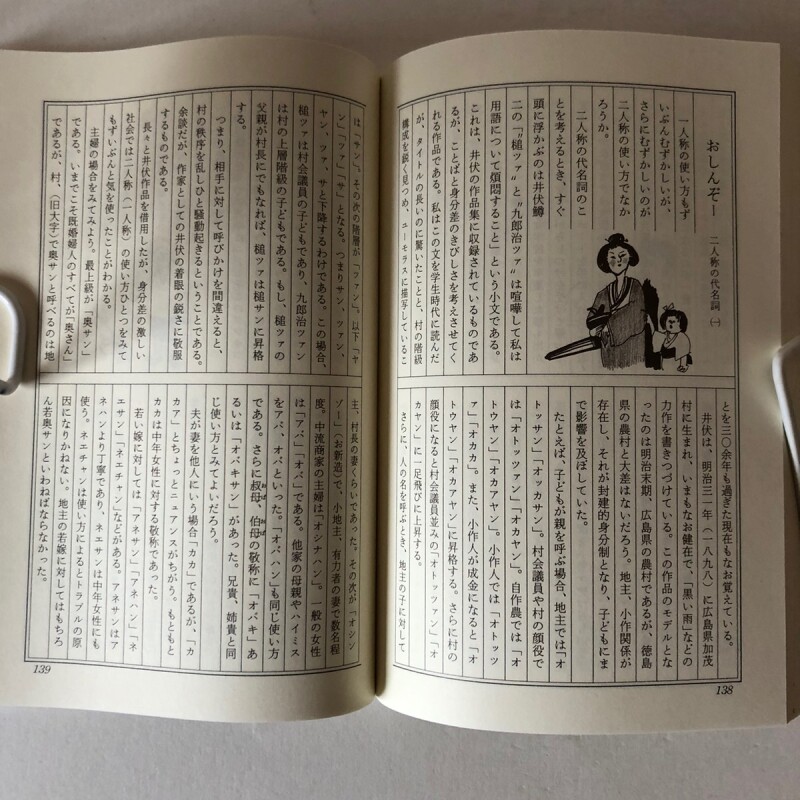 おしんぞー　二人称の代名詞 ㈠
一人称の使い方もず
いぶんむずかしいが、
さらにむずかしいのが
二人称の使い方でなか
ろうか。
二人称の代名詞のこ
とを考えるとき、すぐ
頭に浮かぶのは井伏鱒
二の〝槌ツァ〟と〝九郎治ツァン〟は喧嘩して私は
用語について煩悶すること」という小文である。
これは、井伏の作品集に収録されているものであ
るが、ことばと身分差のきびしさを考えさせてく
れる作品である。私はこの文を学生時代に読んだ
が、タイトルの長いのに驚いたことと、村の階級
構成を鋭く見つめ、ユーモラスに描写しているこ
とを三〇余年も過ぎた現在もなお覚えている。
井伏は、明治三一年（一八九八）に広島県加茂
村に生まれ、いまもなお健在で、「黒い雨」などの
力作を書きつづけている。この作品のモデルとな
ったのは明治末期、広島県の農村であるが、徳島
県の農村と大差はないだろう。地主、小作関係が
存在し、それが封建的身分制となり、子どもにま
で影響を及ぼしていた。
たとえば、子どもが親を呼ぶ場合、地主では「オ
トッサン」「オッカサン」。村会議員や村の顔役で
は「オトッツァン」「オカヤン」。自作農では「オ
トウヤン」「オカアヤン」。小作人では「オトッツ
ァ」「オカカ」。また、小作人が成金になると「オ
トウヤン」「オカアヤン」に昇格する。さらに村の
顔役になると村会議員並みの「オトッツァン」「オ
カヤン」に一足飛びに上昇する。
さらに、人の名を呼ぶとき、地主の子に対して
138
は「サン」、その次の階級が「ツァン」、以下「ヤ
ン」「ツァ」「サ」となる。つまりサン、ツァン、
ヤン、ツァ、サと下降するわけである。この場合、
槌ツァは村会議員の子どもであり、九郎治ツァン
は村の上層階級の子どもである。もし、槌ツァの
父親が村長にでもなれば、槌ツァは槌サンに昇格
する。
つまり、相手に対して呼びかけを間違えると、
村の秩序を乱しひと騒動起きるということである。
余談だが、作家としての井伏の着眼の鋭さに敬服
するものである。
長々と井伏作品を借用したが、身分差の激しい
社会では二人称（一人称）の使い方ひとつをみて
もずいぶんと気を使ったことがわかる。
主婦の場合をみてみよう。最上級が「奥サン」
である。いまでこそ既婚婦人のすべてが「奥さん」
であるが、村、（旧大字）で奥サンと呼べるのは地
主、村長の妻くらいであった。その次が「オシン
ゾー」（お新造）で、小地主、有力者の妻で数名程
度。中流商家の主婦は「オシナハン」。一般の女性
は「アバ」「オバ」である。他家の母親やハイミス
をアバ、オバといった。「オバハン」も同じ使い方
である。さらに叔母、伯母の敬称に「オバキ」あ
るいは「オバキサン」があった。兄貴、姉貴と同
じ使い方とみてよいだろう。
夫が妻を他人にいう場合「カカ」であるが、「カ
カア」とちょっとニュアンスがちがう。もともと
カカは中年女性に対する敬称であった。
若い嫁に対しては「アネサン」「アネハン」「ネ
エサン」「ネエチャン」などがある。アネサンはア
ネハンより丁寧であり、ネエサンは中年女性にも
使う。ネエチャンは使い方によるとトラブルの原
因になりかねない。地主の若嫁に対してはもちろ
ん若奥サンといわねばならなかった。
139